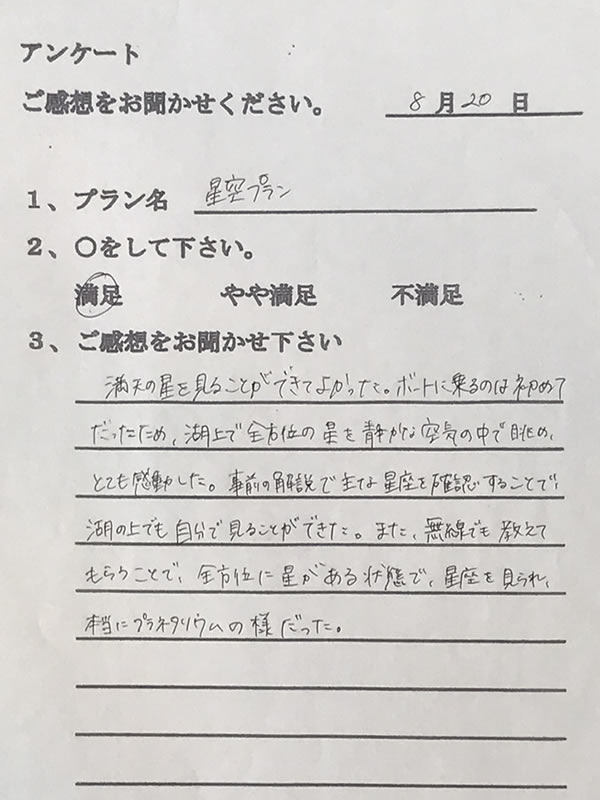 アンケート
ご感想をお聞かせください。 8月20日
1、プラン名 星空プラン
2、〇をして下さい。
満足 やや満足 不満足
3、ご感想をお聞かせ下さい
満天の星を見ることができてよかった。ボートに乗るのは初めて
だったため、湖上で全方位の星を静かな空気の中で眺め、
とても感動した。事前の解説で主な星座を確認することで、
湖の上でも自分で見ることができた。また、無線でも教えて
もらうことで、全方位に星がある状態で、星座を見られ、
本当にプラネタリウムの様だった。